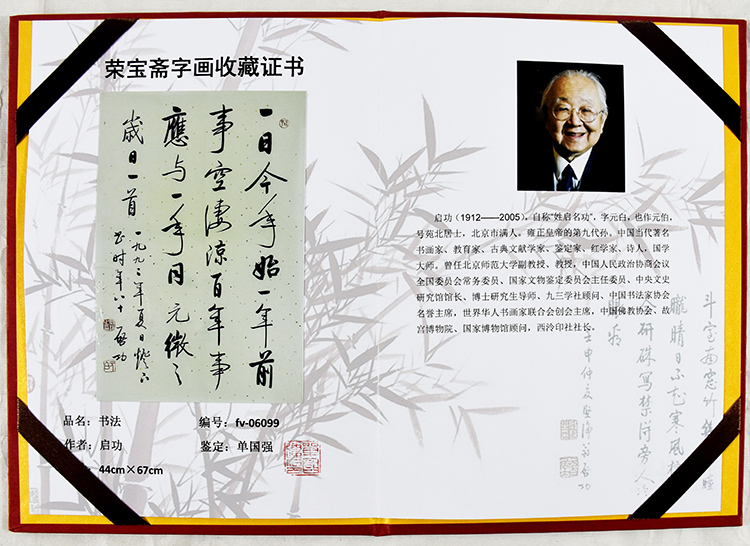 荣宝斋字画收藏证书
一日今年始一年前
事空淒涼百年事
應与一年同元微之
歲日一首
一九九二年夏日燈下
書时年八十 啟功
品名：书法
编号：fv-06099
作者：启功
鉴定：单国强
44cm×67cm
启功（1912——2005），自称“姓启名功”，字元白，也作元伯，
号苑北居士，北京市满人。雍正皇帝的第九代孙。中国当代著名
书画家、教育家、古典文献学家、鉴定家、红学家、诗人，国学
大师。曾任北京师范大学副教授、教授，中国人民政治协商会议
全国委员会常务委员、国家文物鉴定委员会主任委员、中央文史
研究馆馆长、博士研究生导师、九三学社顾问、中国书法家协会
名誉主席，世界华人书画家联合会创会主席，中国佛教协会、故
宫博物院、国家博物馆顾问，西泠印社社长。
斗室南窗竹
朧晴日不知寒風
研硃寫禁得旁人冷
看
壬申仲夏坚净翁启功